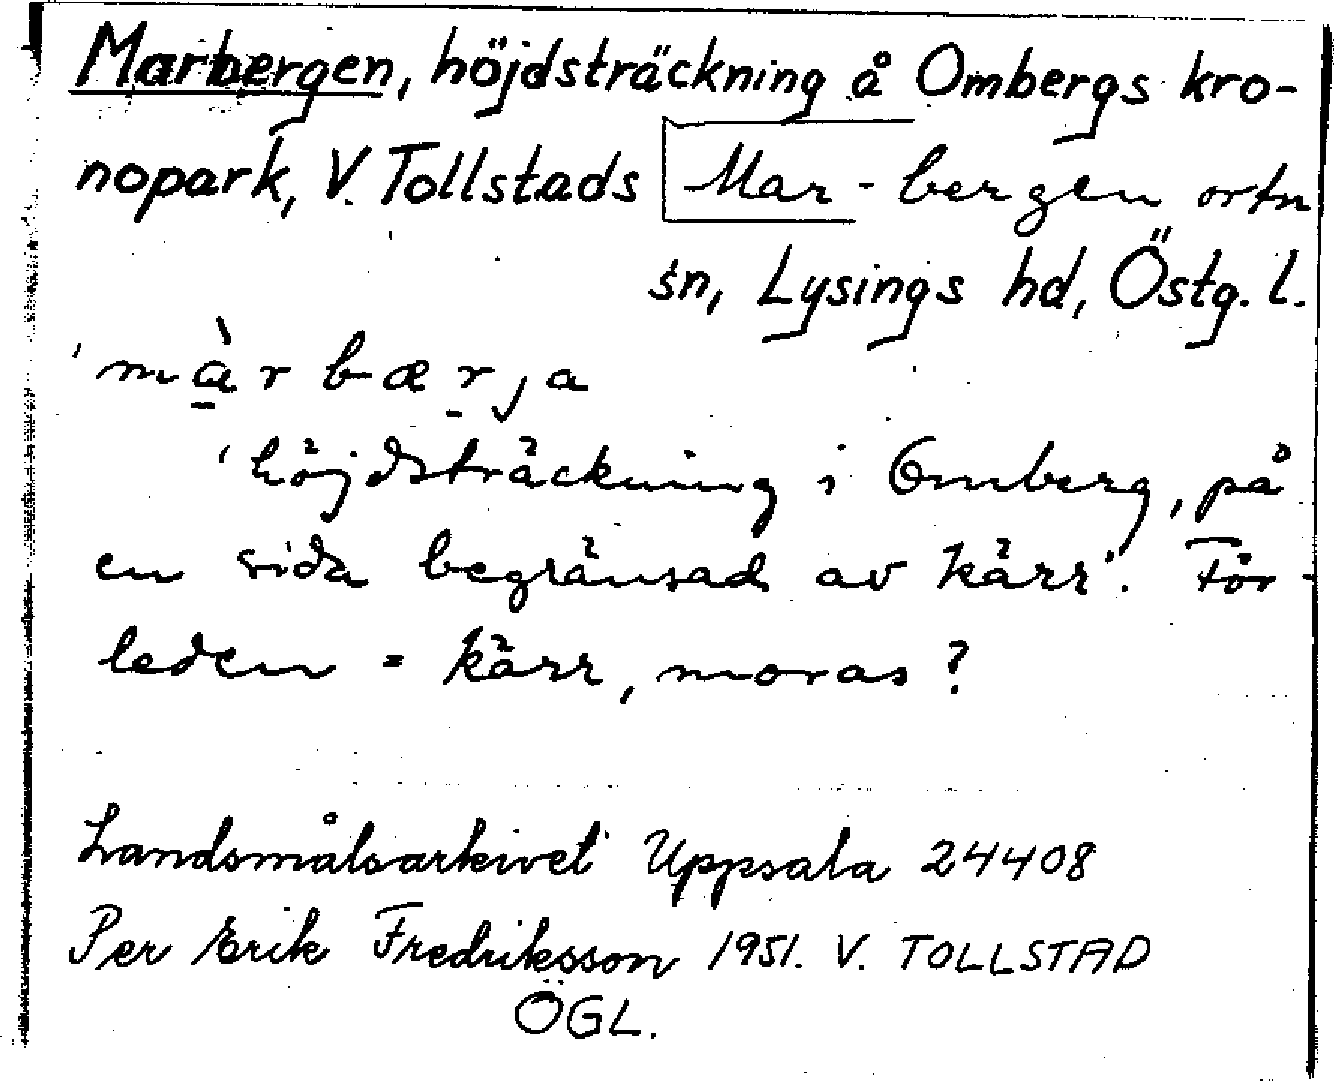 Marbergen, höjdsträckning å Ombergs kro-
nopark, V. Tollstads Mar-bergen ortn
sn, Lysings hd, Östg. l.
'màrbærja
'höjdsträckning i Omberg, på
en sida begränsad av kärr'. För-
leden = kärr, moras?
Landsmålsarkivet Uppsala 24408
Per Erik Fredriksson 1951. V. TOLLSTAD
ÖGL.